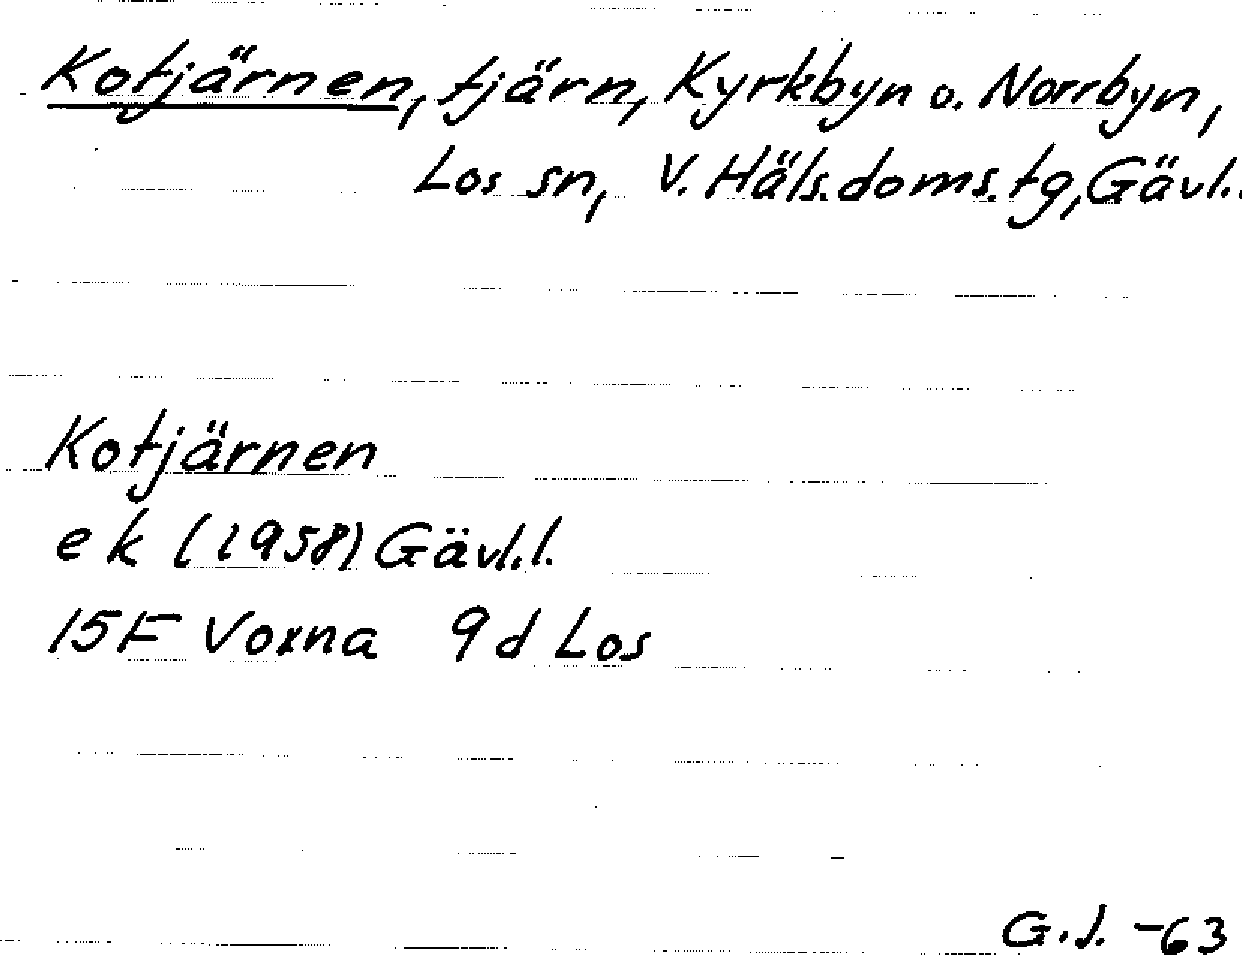 Kotjärnen, tjärn, Kyrkbyn o. Norrbyn,
Los sn, V. Häls.doms.tg, Gävl.l.
Kotjärnen
ek (1958) Gävl.l.
15F Voxna 9d Los
G.J. -63